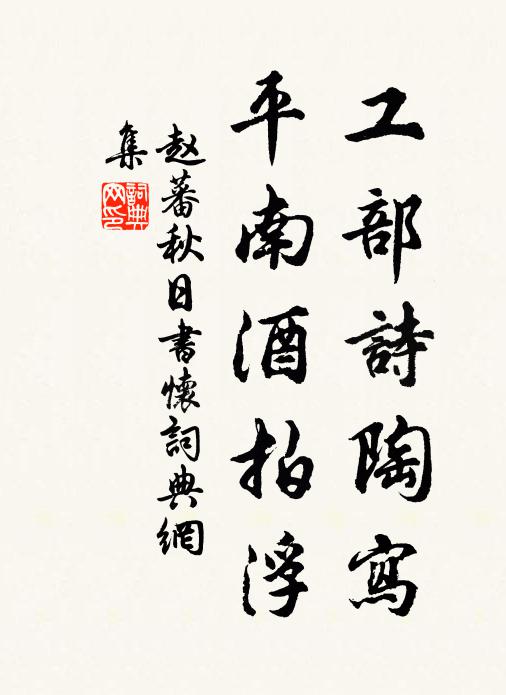 工部詩陶寫
平南酒拍浮
赵蕃秋日書懷詞典網
集
詞典
网印